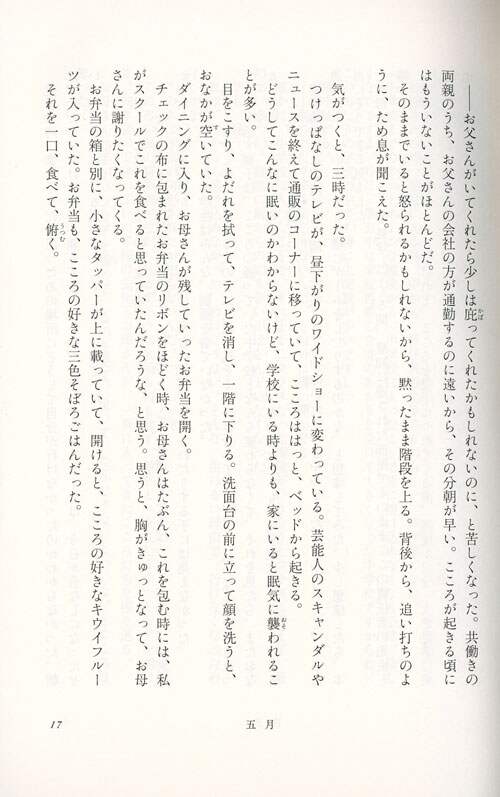 ――お父さんがいてくれたら少しは庇ってくれたかもしれないのに、と苦しくなった。共働きの
両親のうち、お父さんの会社の方が通勤するのに遠いから、その分朝が早い。こころが起きる頃に
はもういないことがほとんどだ。
そのままでいると怒られるかもしれないから、黙ったまま階段を上る。背後から、追い打ちのよ
うに、ため息が聞こえた。
気がつくと、三時だった。
つけっぱなしのテレビが、昼下がりのワイドショーに変わっている。芸能人のスキャンダルや
ニュースを終えて通販のコーナーに移っていて、こころははっと、ベッドから起きる。
どうしてこんなに眠いのかわからないけど、学校にいる時よりも、家にいると眠気に襲われるこ
とが多い。
目をこすり、よだれを拭って、テレビを消し、一階に下りる。洗面台の前に立って顔を洗うと、
おなかが空いていた。
ダイニングに入り、お母さんが残していったお弁当を開く。
チェックの布に包まれたお弁当のリボンをほどく時、お母さんはたぶん、これを包む時には、私
がスクールでこれを食べると思っていたんだろうな、と思う。思うと、胸がきゅっとなって、お母
さんに謝りたくなってくる。
お弁当の箱と別に、小さなタッパーが上に載っていて、開けると、こころの好きなキウイフルー
ツが入っていた。お弁当も、こころの好きな三色そぼろごはんだった。
それを一口、食べて、俯く。
17 五月